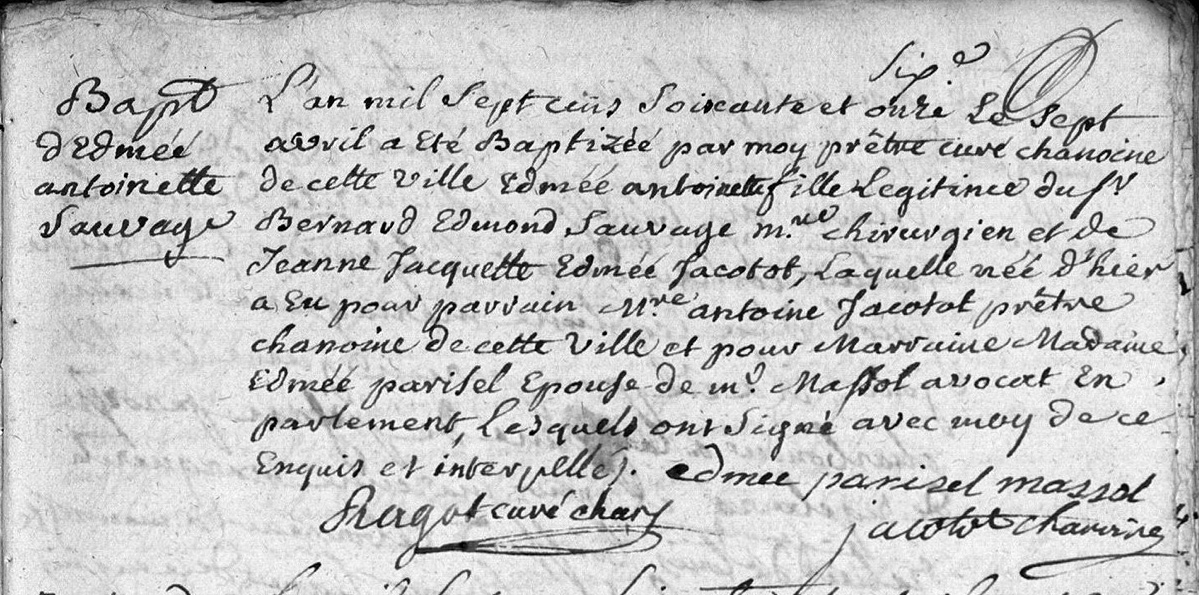 Sixe
Bapt
d'Edméé
antoinette
Sauvage
L'an mil sept cens soixante et onze Le sept
avril a Eté Baptizéé par moy prêtre curé chanoine
de cette Ville Edméé antoinette fille Legitime du Sr
Bernard Edmond Sauvage m.re chirurgien et de
Jeanne Jacquette Edméé Jacotot, Laquelle néé d'hier
a Eu pour parrain Mre antoine Jacotot prêtre
chanoine de cette Ville et pour Marraine Madame
Edméé parisel Epouse de mr. Massol avocat En
parlement, Lesquels ont signé avec moy de ce
Enquis et interpellés. edmee parisel massol
Ragot curé chan
jacotot chanoine